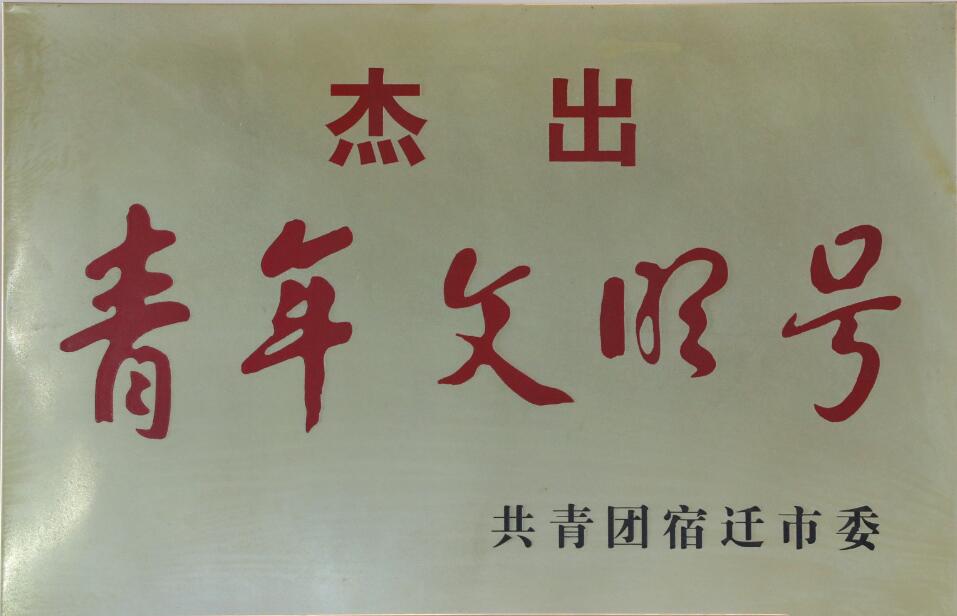 杰出
青年文明号
共青团宿迁市委